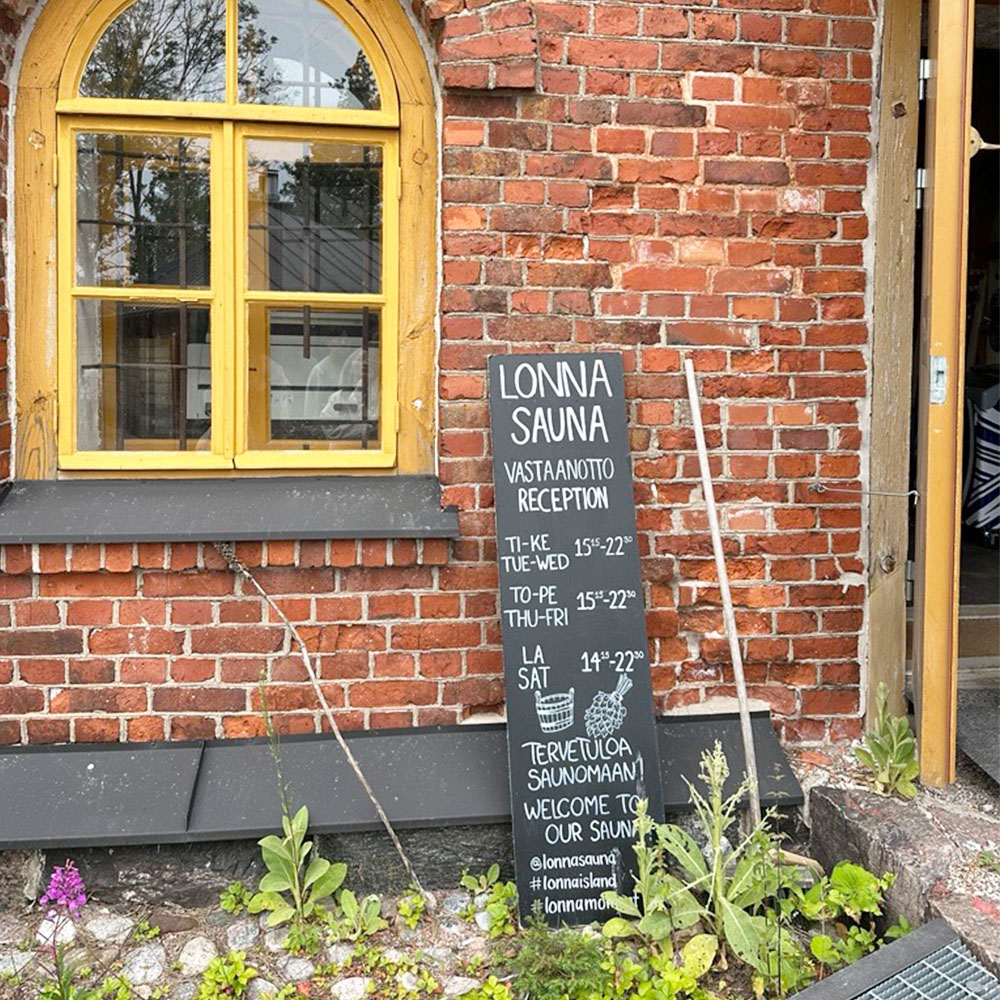 LONNA
SAUNA
VASTAANOTTO
RECEPTION
TI-KE
TUE-WED 15¹⁵-22³⁰
TO-PE
THU-FRI 15¹⁵-22³⁰
LA
SAT 14¹⁵-22³⁰
TERVETULOA
SAUNOMAAN!
WELCOME TO
OUR
@lonnasauna
#lonnaisland